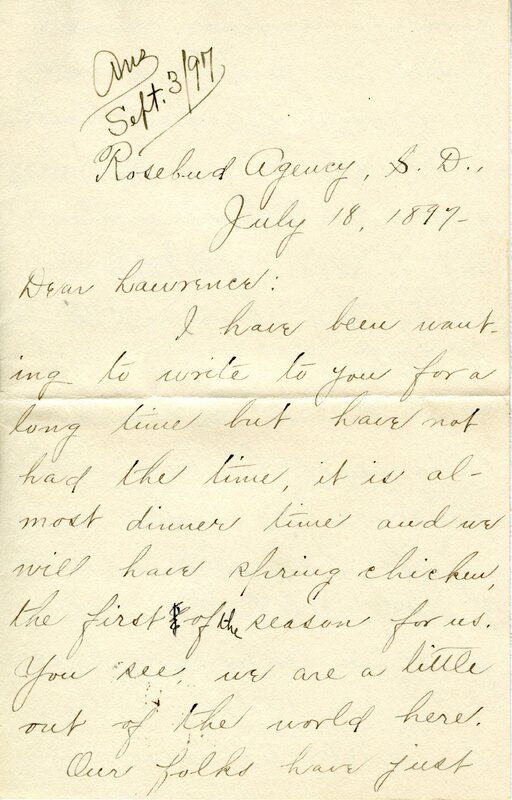 Ans
Sept. 3/97
Rosebud Agency, S. D.,
July 18, 1897-
Dear Lawrence:
I have been want-
ing to write to you for a
long time but have not
had the time, it is al-
most dinner time and we
will have spring chicken,
the first of the season for us.
You see, we are a little
out of the world here.
Our folks have just